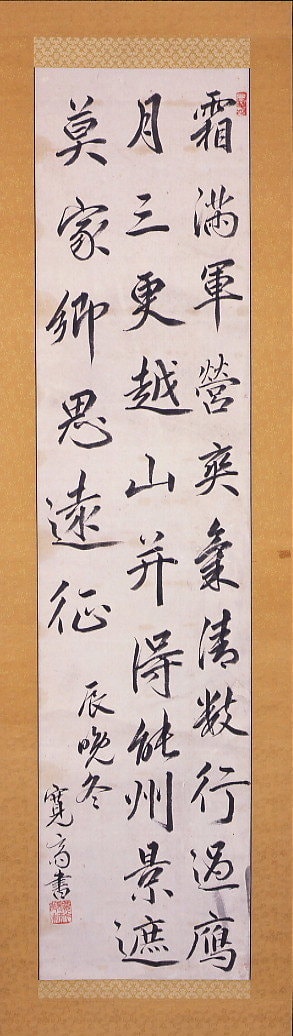 霜満軍營爽氣清数行過鴈
月三更越山并得能州景遮
莫家郷思遠征
辰晩冬
寛 書